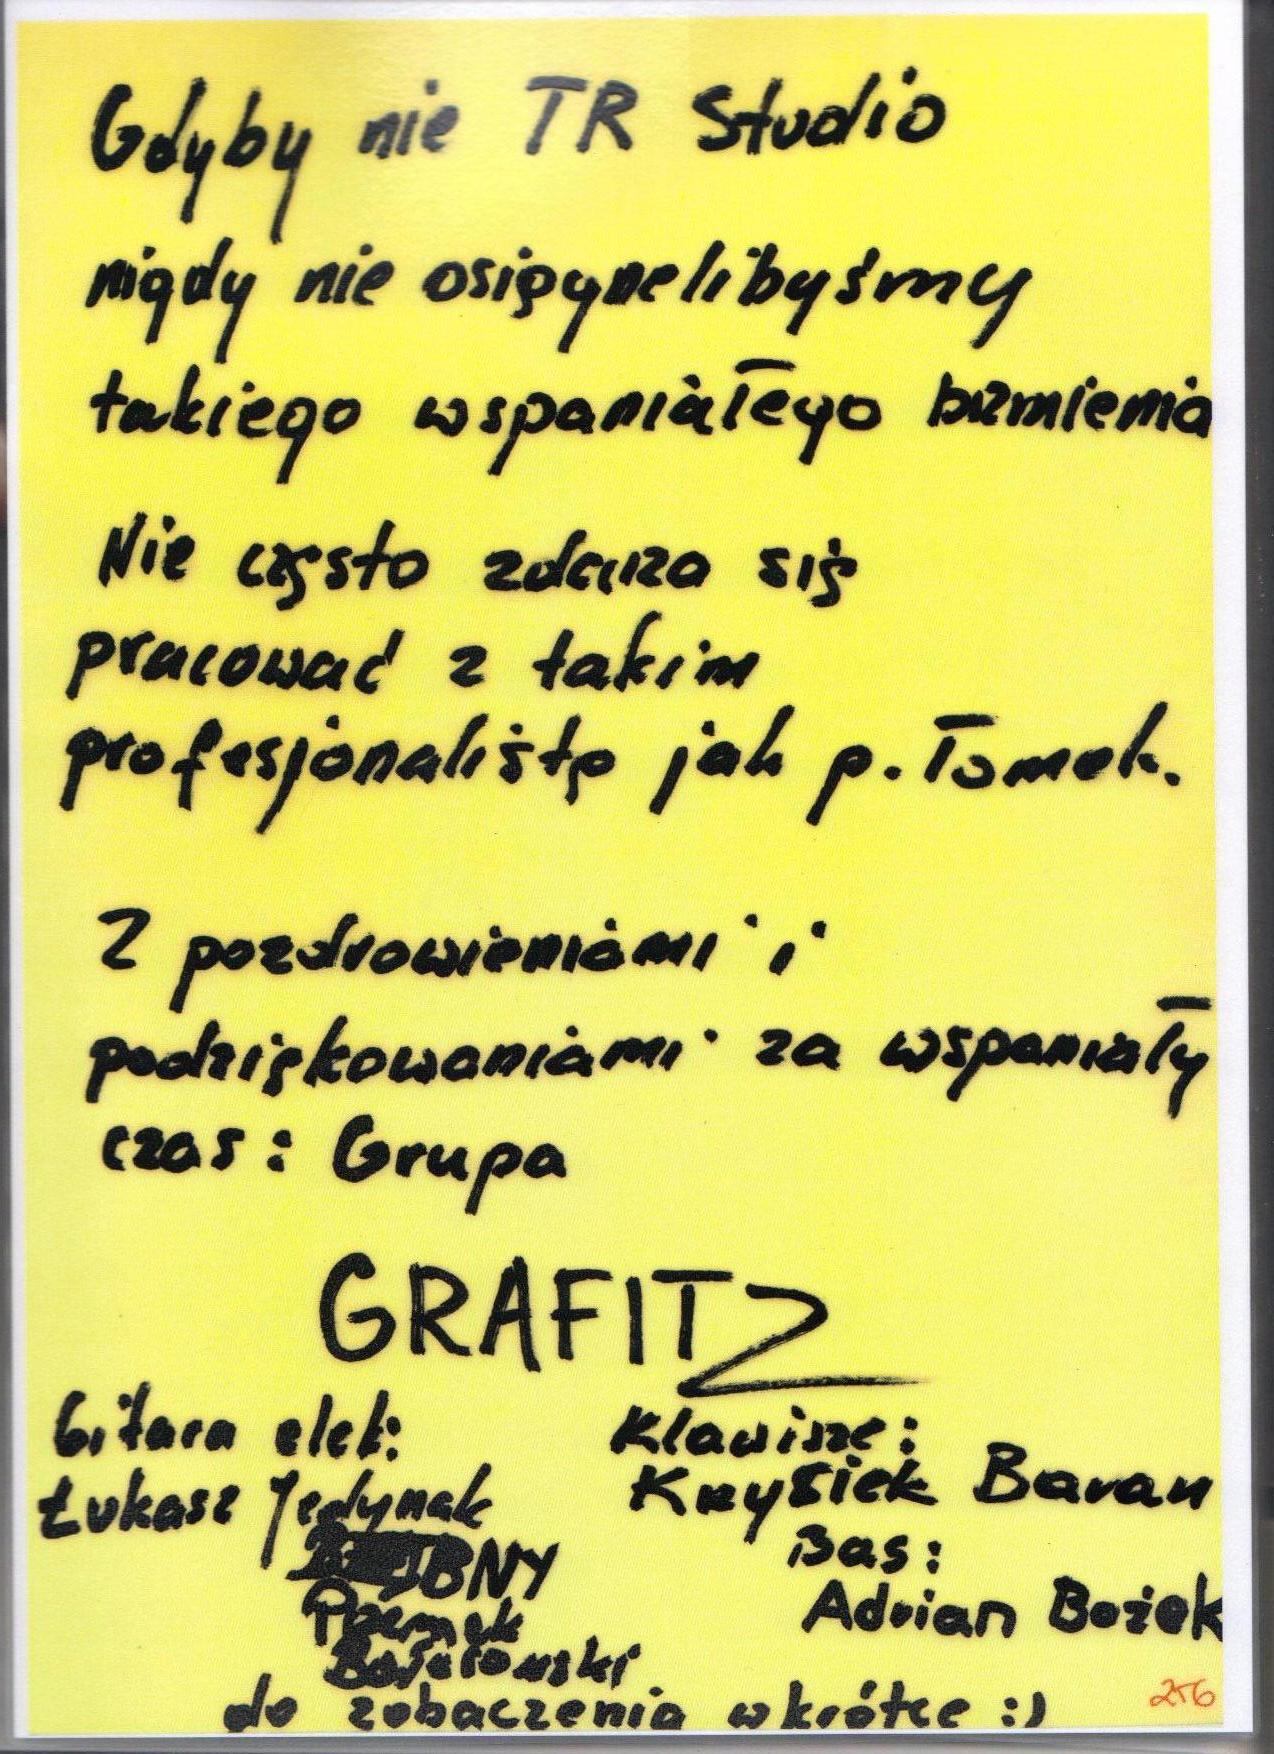 Gdyby nie TR Studio
nigdy nie osięgnelibyśmy
takiego wspaniałego brzmienia
Nie często zdarza się
pracować z takim
profesjonalistą jak p. Tomek.
Z pozdrowieniami i
podziękowaniami za wspaniały
czas: Grupa
GRAFITZ
Gitara elek:
Łukasz Jedynak
Klawisze:
Krzysiek Baran
Bas:
Adrian Bożek
Przemek
do zobaczenia wkrótce :)
256